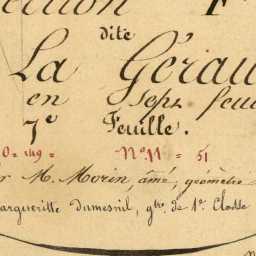 ection F
dite
La Gérau
en Sept feu
7e Feuille.
0 = 149 = N° 11 = 51
r M. Morin, aîné, géomètre
arguerite Dumesnil, gtre. de 1re Classe